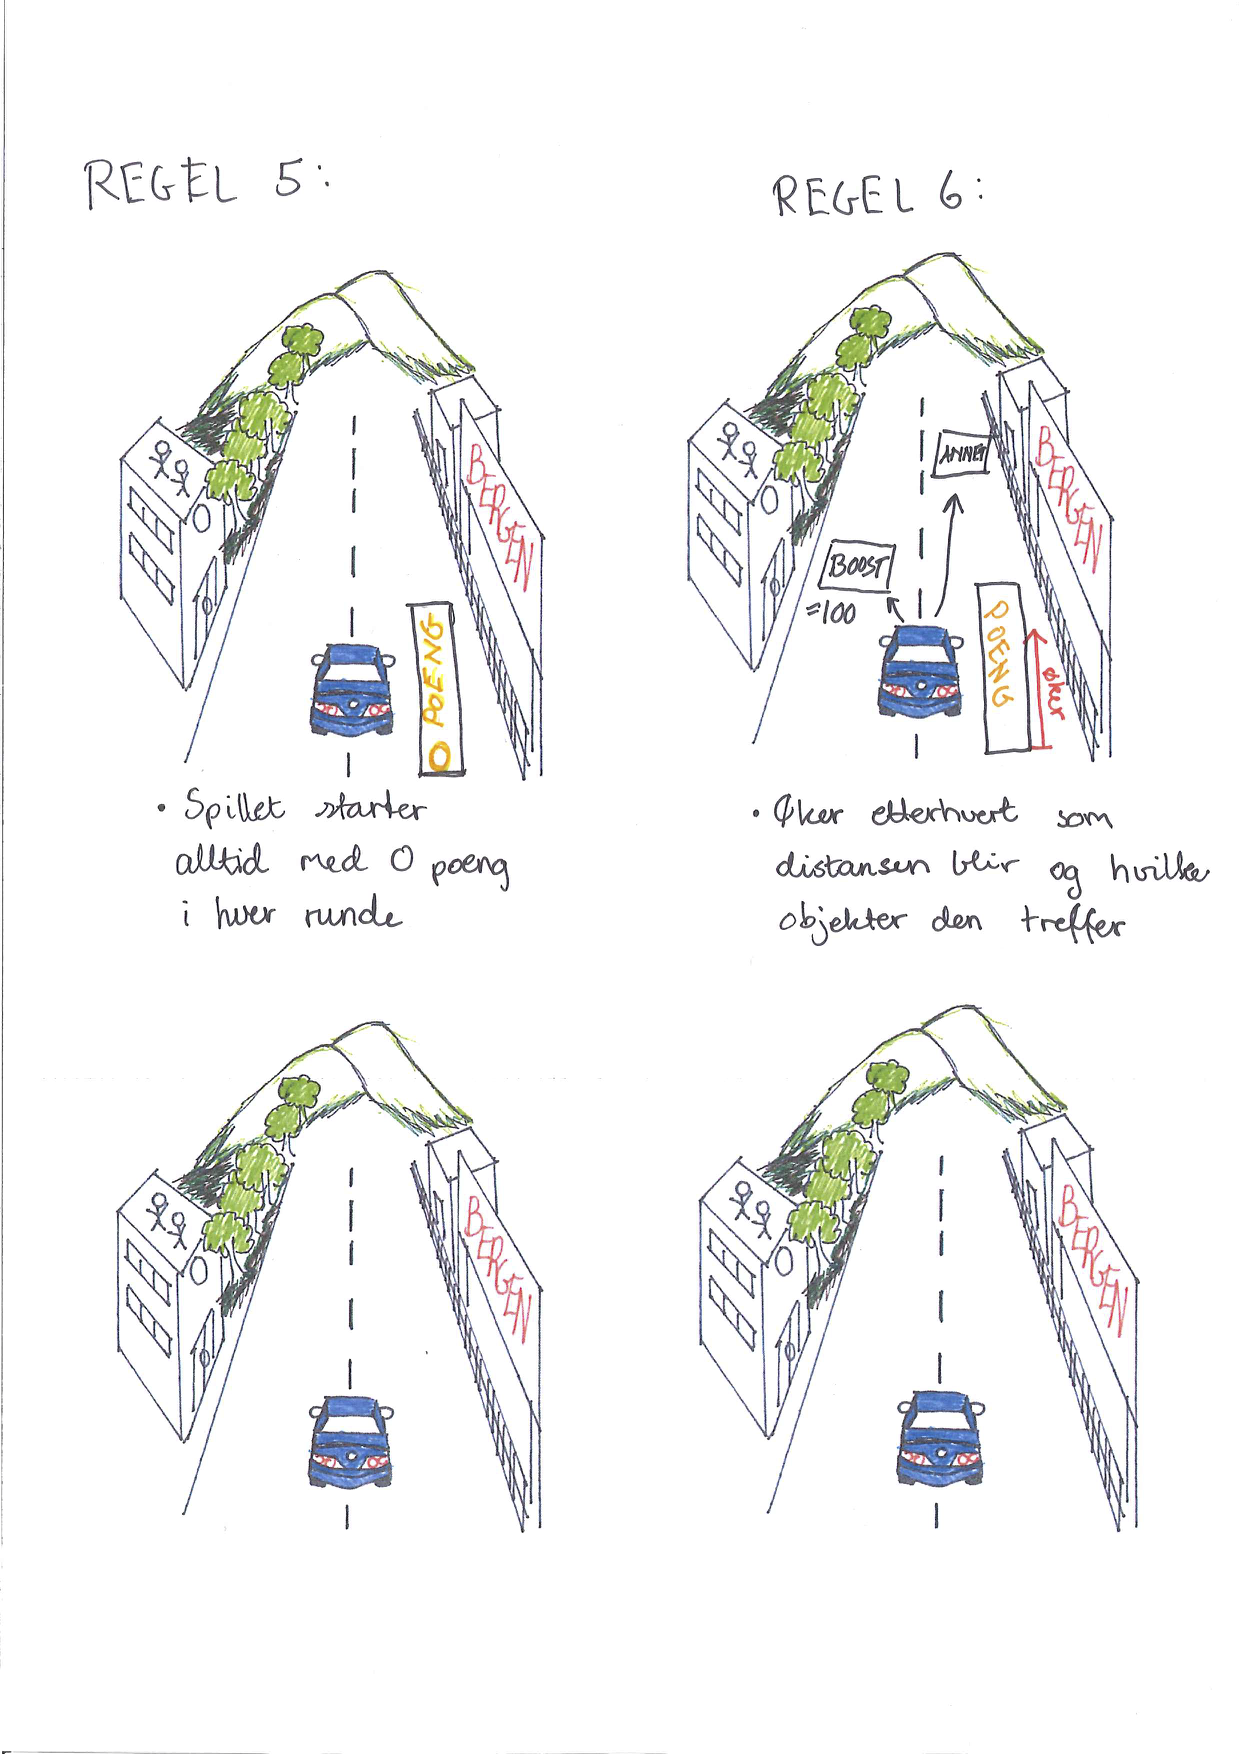 REGEL 5:
BERGEN
0 POENG
• Spillet starter
alltid med 0 poeng
i hver runde
REGEL 6:
ANNET
BERGEN
BOOST
=100
POENG
øker
• Øker etterhvert som
distansen blir og hvilke
objekter den treffer
BERGEN
BERGEN